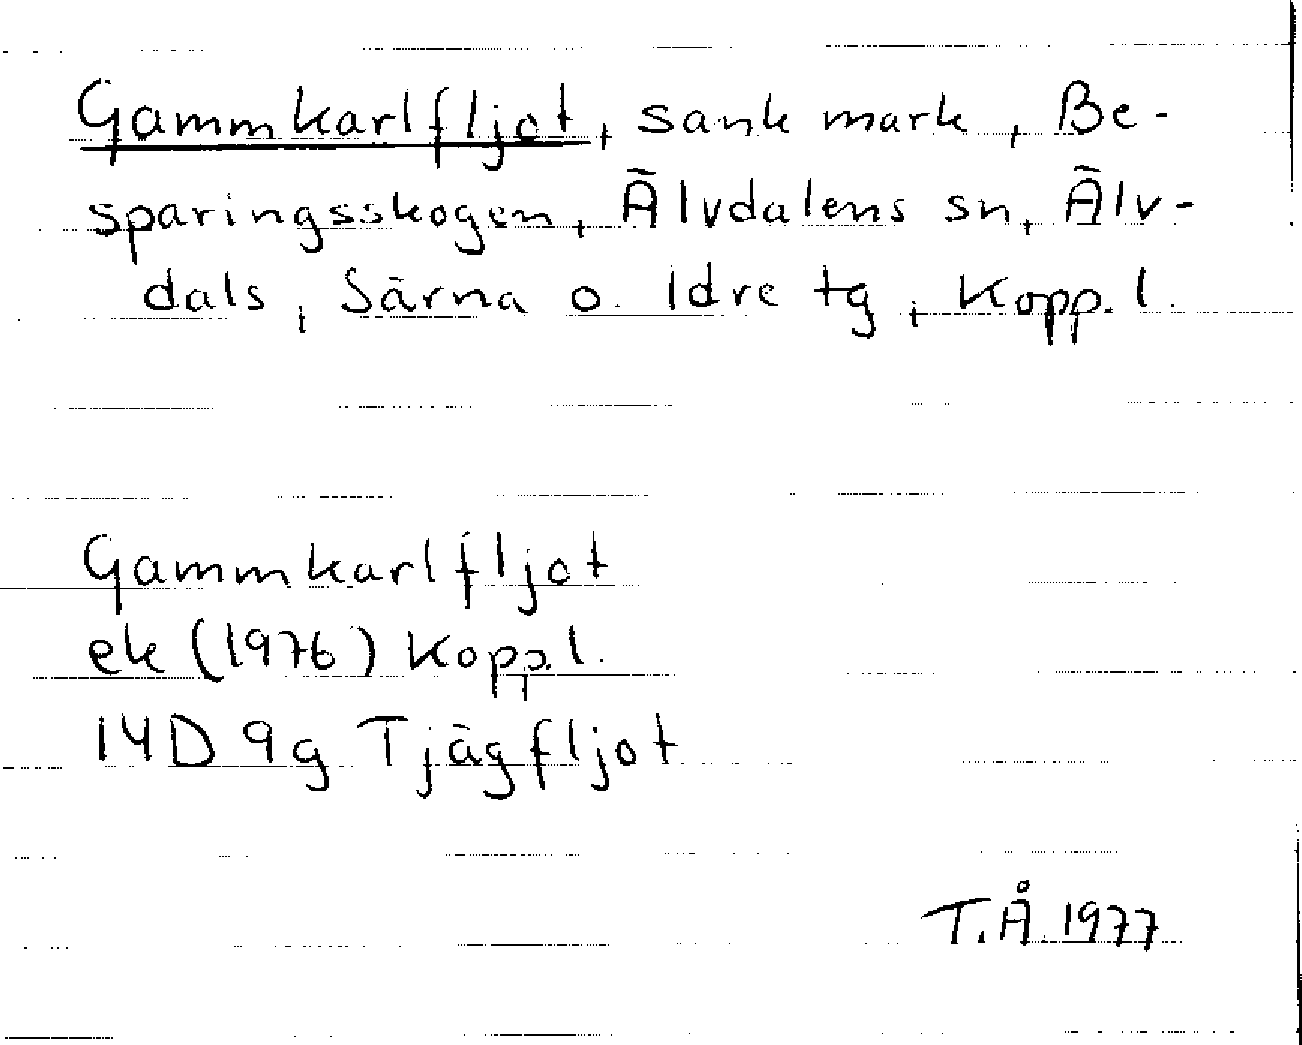 Gammkarlfljot, sank mark, Be-
sparingsskogen, Älvdalens sn, Älv-
dals, Särna o. Idre tg, Kopp. l.
Gammkarlfljot
ek (1976) Kopp. l.
14D 9g Tjägfljot
T.Å. 1977